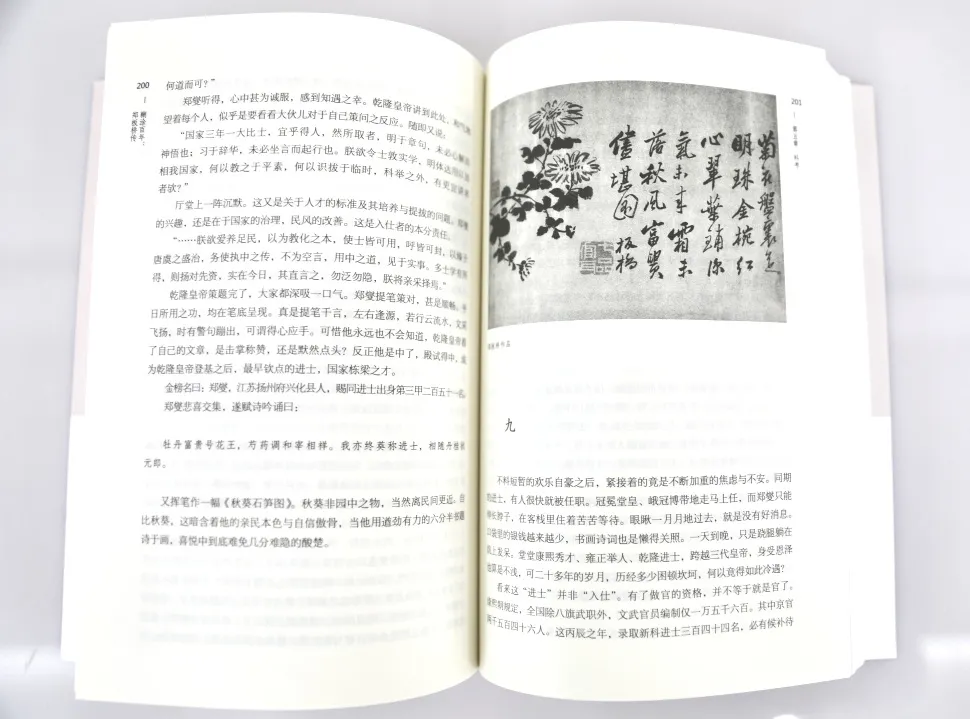 200
何道而可？”
郑燮听得，心中甚为诚服，感到知遇之幸。乾隆皇帝讲到此处，和气
望着每个人，似乎是要看看大伙儿对于自己策问之反应。随即又说：
“国家三年一大比士，宜乎得人，然所取者，明于章句，未必心解
神悟也；习于辞华，未必坐言而起行也。朕欲令士敦实学，明体达用以
相我国家，何以教之于平素，何以识拔于临时，科举之外，有更宜讲求
者欤？”
厅堂上一阵沉默。这又是关于人才的标准及其培养与提拔的问题。郑燮
的兴趣，还是在于国家的治理，民风的改善。这是入仕者的本分责任。
“……朕欲爱养足民，以为教化之本，使士皆可用，呼皆可封，以
唐虞之盛治，务使执中之传，不为空言，用中之道，见于实事、多士学有
得，则扬对先资，实在今日，其直言之，勿泛勿隐，朕将亲采择焉。”
乾隆皇帝策题完了，大家都深吸一口气。郑燮提笔策对，甚是顺畅。平
日所用之功，均在笔底呈现。真是提笔千言，左右逢源，若行云流水，文采
飞扬，时有警句蹦出，可谓得心应手。可惜他永远也不会知道，乾隆皇帝看
了自己的文章，是击掌称赞，还是默然点头？反正他是中了，殿试得中，成
为乾隆皇帝登基之后，最早钦点的进士，国家栋梁之才。
金榜名曰：郑燮，江苏扬州府兴化县人，赐同进士出身第三甲二百五十一名。
郑燮悲喜交集，遂赋诗吟诵曰：
牡丹富贵号花王，芍药调和宰相祥。我亦终葵称进士，相随丹桂状
元郎。
又挥笔作一幅《秋葵石笋图》。秋葵非园中之物，当然离民间更近。自
比秋葵，这暗含着他的亲民本色与自信傲骨，当他用道劲有力的六分半书题
诗于画，喜悦中到底难免几分难隐的酸楚。
201
菊花盤裏送
明珠金椀红
心翠葉铺深
氣未来霜未
落秋風富貴
儘堪圖 板橋
郑板桥作品
九
不料短暂的欢乐自豪之后，紧接着的竟是不断加重的焦虑与不安。同期
的进士，有人很快就被任职。冠冕堂皇、峨冠博带地走马上任，而郑燮只能
伸长脖子，在客栈里任着苦苦等待。眼瞅一月月地过去，就是没有好消息。
囊里的银钱越来越少，书画诗词也是懒得关照。一天到晚，只是跷腿躺在
上发呆。堂堂康熙秀才、雍正举人、乾隆进士，跨越三代皇帝，身受恩泽
是不浅，可二十多年的岁月，历经多少困顿坎坷，何以竟得如此冷遇？
看来这“进士”并非“入仕”。有了做官的资格，并不等于就是官了。
制规定，全国除八旗武职外，文武官员编制仅一万五千六百。其中京官
两千五百四十六人。这丙辰之年，录取新科进士三百四十四名，必有候补待